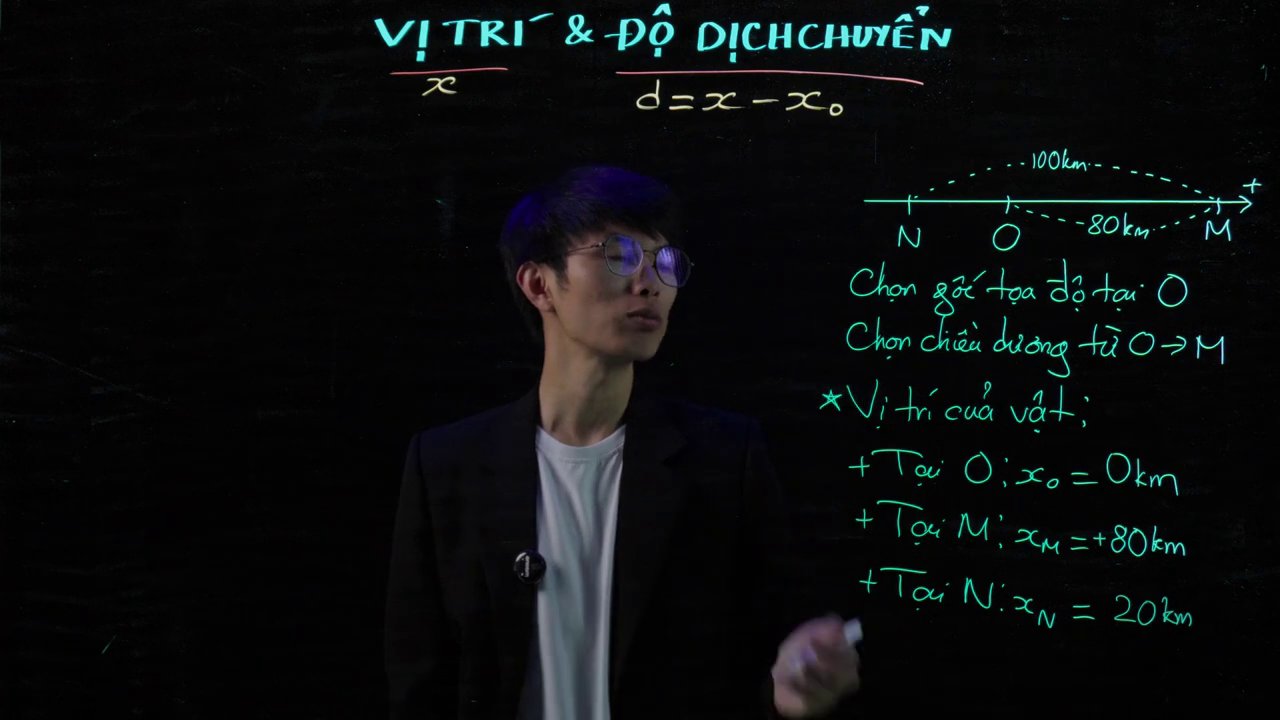 VỊ TRÍ & ĐỘ DỊCH CHUYỂN
x
d = x - x₀
100km
+
N O M
80km
Chọn gốc tọa độ tại O
Chọn chiều dương từ O → M
* Vị trí của vật:
+ Tại O: x₀ = 0km
+ Tại M: x_M = +80km
+ Tại N: x_N = 20km